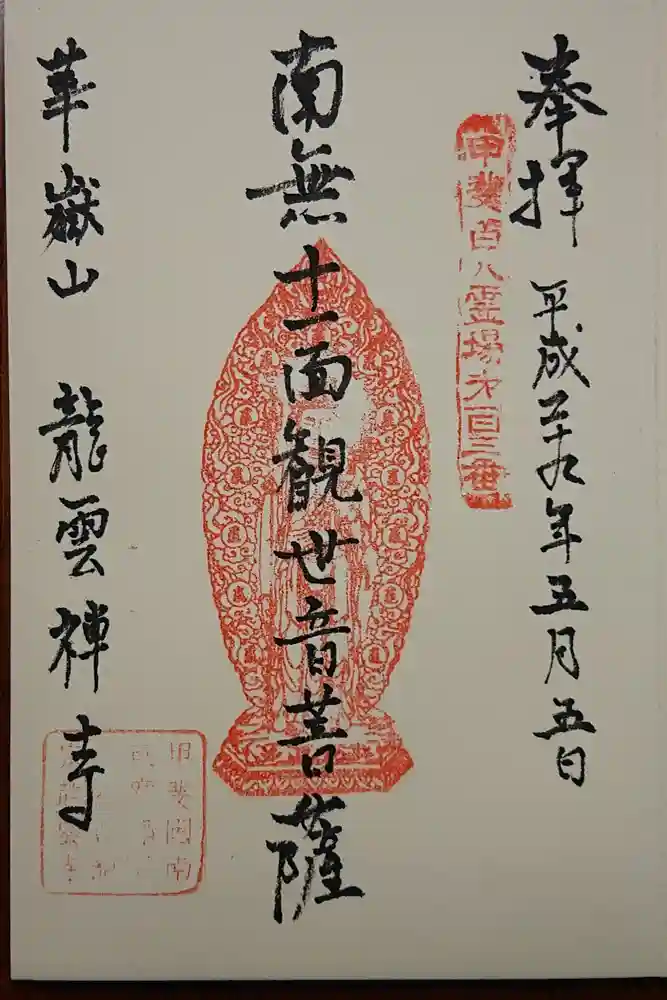 奉拝 平成二十九年五月五日
甲斐百八霊場第百三番
南無十一面観世音菩薩
華嶽山 龍雲禅寺
甲斐国南